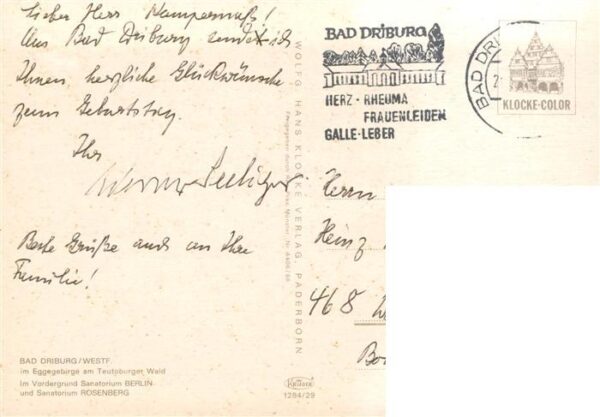 Lieber Herr Kampernaß!
Aus Bad Driburg sende ich
Ihnen herzliche Glückwünsche
zum Geburtstag.
Ihr
Werner Seeliger
Beste Grüße auch an Ihre
Familie!
BAD DRIBURG/WESTF.
im Eggegebirge am Teutoburger Wald
Im Vordergrund Sanatorium BERLIN
und Sanatorium ROSENBERG
WOLFG. HANS KLOCKE VERLAG, PADERBORN
Krüger
1284/29
BAD DRIBURG
HERZ · RHEUMA
FRAUENLEIDEN
GALLE · LEBER
BAD DRI
KLOCKE-COLOR
Herrn
Heinz
468